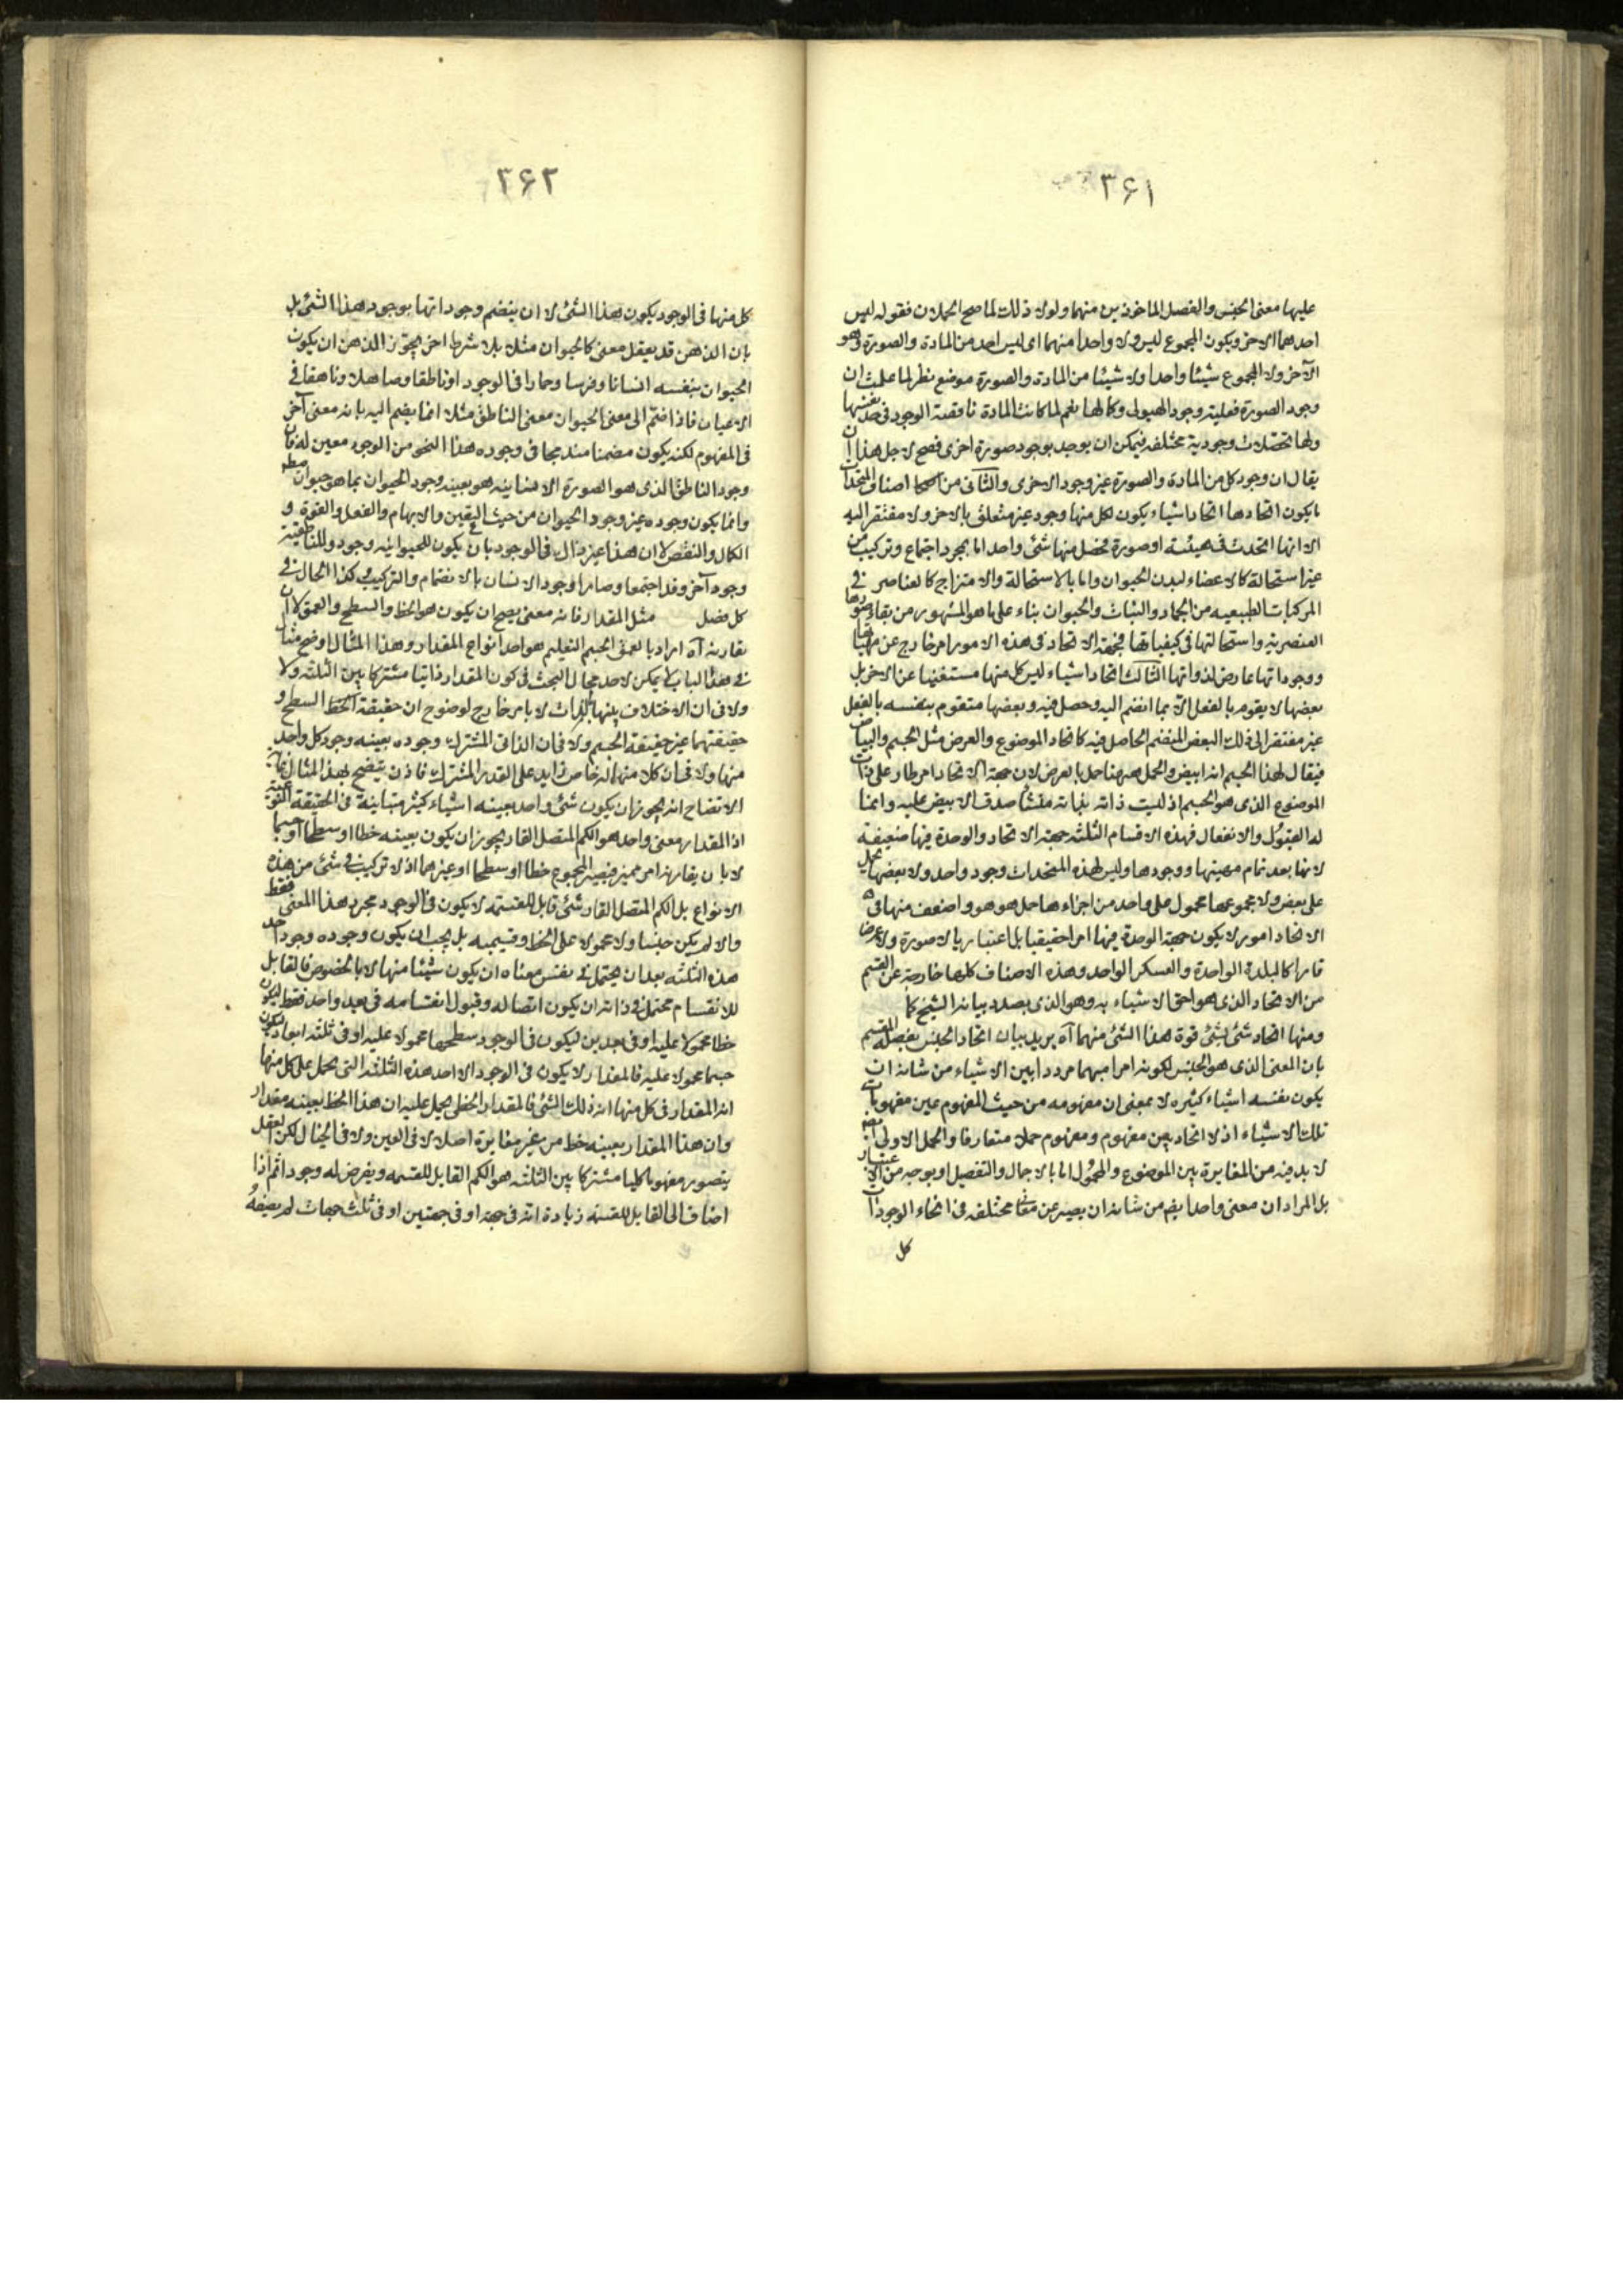 ۳۶۱
عليها معنى الجنس والفصل الماخوذين منهما ولولا ذلك لما صح الحملان فقوله ليس
احدهما الاخر ويكون المجموع ليس ولا واحدا منهما اى ليس احد من المادة والصورة هو
الآخر ولا المجموع شيئا واحدا ولا شيئا من المادة والصورة موضع نظر لما علمت ان
وجود الصورة فعلية وجود الهيولى وكمالها نعم لما كانت المادة ناقصة الوجود فى حد نفسها
ولها تحصلات وجودية مختلفه فيمكن ان يوجد بوجود صورة اخرى فصح لاجل هذا ان
يقال ان وجود كل من المادة والصورة غير وجود الاخرى والثانى من اصناف المتحدات
ما يكون اتحادها اتحاد اشياء يكون لكل منها وجود غير متعلق بالاخر ولا مفتقر اليه
الا انها اتحدت فى هيئة او صورة فحصل منها شئ واحد اما بمجرد اجتماع وتركيب من
غير استحالة كالاعضاء لبدن الحيوان واما بالاستحالة والامتزاج كالعناصر فى
المركبات الطبيعيه من الجماد والنبات والحيوان بناء على ما هو المشهور من بقاء صورها
العنصرية واستحالتها فى كيفياتها فجهة الاتحاد فى هذه الامور امر خارج عن مهياتها
ووجوداتها عارض لذواتها الثالث اتحاد اشياء ليس كل منها مستغنيا عن الاخر بل
بعضها لا يقوم بالفعل الا بما انضم اليه وحصل فيه وبعضها متقوم بنفسه بالفعل
غير مفتقر الى ذلك البعض المنضم الحاصل فيه كاتحاد الموضوع والعرض مثل الجسم والبياض
فيقال لهذا الجسم انه ابيض والحمل ههنا حمل بالعرض لان جهة الاتحاد امر طار على ذات
الموضوع الذى هو الجسم اذ ليست ذاته بذاته منشأ صدق الابيض عليه وانما
له القبول والانفعال فهذه الاقسام الثلثه جهة الاتحاد والوحدة فيها ضعيفة
لانها بعد تمام مهيتها ووجودها وليس لهذه المتحدات وجود واحد ولا بعضها يحمل
على بعض ولا مجموعها محمول على واحد من اجزاءها حمل هو هو واضعف منها فى
الاتحاد امور لا يكون جهة الوحدة فيها امرا حقيقيا بل اعتباريا لا صورة ولا عرضا
قارا كالبلدة الواحدة والعسكر الواحد وهذه الاصناف كلها خارجة عن القسم
من الاتحاد الذى هو احق الاشياء به وهو الذى بصدد بيانه الشيخ
ومنها اتحاد شئ بشئ قوة هذا الشئ منهما آه يريد بيان اتحاد الجنس بفصله المقسم
بان المعنى الذى هو الجنس لكونه امرا مبهما مرددا بين الاشياء من شانه ان
يكون بنفسه اشياء كثيره لا بمعنى ان مفهومه من حيث المفهوم عين مفهومات
تلك الاشياء اذ لا اتحاد بين مفهوم ومفهوم حملا متعارفا والحمل الاولى
لا بد فيه من المغايرة بين الموضوع والمحمول اما بالاجمال والتفصيل او بوجه من الاعتبار
بل المراد ان معنى واحدا يضم من شانه ان يصير عين معان مختلفه فى انحاء الوجودات
كل
۳۶۲
كل منها فى الوجود يكون هذا الشئ لا ان ينضم وجوداتها بوجود هذا الشئ بل
بان الذهن قد يعقل معنى كالحيوان مثلا بلا شرط اخر يجوز الذهن ان يكون
الحيوان بنفسه انسانا وفرسا وحمارا فى الوجود او ناطقا وصاهلا وناهقا فى
الاعيان فاذا ضم الى معنى الحيوان معنى الناطق مثلا انما يضم اليه بانه معنى آخر
فى المفهوم لكنه يكون مضمنا مندمجا فى وجوده هذا النحو من الوجود معين له فان
وجود الناطق الذى هو الصورة الانسانيه هو بعينه وجود الحيوان بما هو حيوان مطلق
وانما يكون وجوده غير وجود الحيوان من حيث التعين والابهام والفعل والقوة و
الكمال والنقص لا ان هذا غير ذاك فى الوجود بان يكون للحيوانيه وجود وللناطقية
وجود آخر وقد اجتمعا وصارا وجود الانسان بالانضمام والتركيب وكذا الحال فى
كل فصل مثل المقدار فانه معنى يصح ان يكون هو الخط والسطح والعمق لا ان
يقارنه آه اراد بالعمق الجسم التعليم هو احد انواع المقدار وهذا المثال اوضح مثال
فى هذا الباب لا يمكن لاحد مجال البحث فى كون المقدار ذاتيا مشتركا بين الثلثه ولا
ولا فى ان الاختلاف بينها بالذات لا بامر خارج لوضوح ان حقيقة الخط السطح و
حقيقتهما غير حقيقة الجسم ولا فى ان الذاتى المشترك وجوده بعينه وجود كل واحد
منها ولا فى ان كلا منها له خاص زايد على القدر المشترك فاذن يتضح بهذا المثال غاية
الاتضاح انه يجوز ان يكون شئ واحد بعينه اشياء كثيرة متباينة فى الحقيقة النوعية
اذ المقدار معنى واحد هو الكم المتصل القار يجوز ان يكون بعينه خطا او سطحا او جسما
لا بان يقارنه امر مميز فيصير المجموع خطا او سطحا او غيرهما اذ لا تركيب فى شئ من هذه
الانواع بل الكم المتصل القار شئ قابل للقسمة لا يكون فى الوجود مجرد هذا المعنى فقط
والا لم يكن جنسا ولا محمولا على الخط وقسيميه بل يجب ان يكون وجوده وجود احد
هذه الثلثه بعد ان يحتمل فى نفس معناه ان يكون شيئا منها لا بالخصوص فالقابل
للانقسام محتمل فى ذاته ان يكون اتصاله وقبول انقسامه فى بعد واحد فقط ليكون
خطا محمولا عليه او فى بعدين ليكون فى الوجود سطحها محمولا عليه او فى ثلثه ابعاد ليكون
جسما محمولا عليه فالمقدار لا يكون فى الوجود الا احد هذه الثلثه التى يحمل على كل منها
انه المقدار فى كل منها انه ذلك الشئ فالمقدار الخطى يحمل عليه ان هذا الخط بعينه مقدار
وان هذا المقدار بعينه خط من غير مغايرة اصلا لا فى العين ولا فى الخيال لكن العقل
يتصور مفهوما كليا مشتركا بين الثلثه هو الكم القابل للقسمه ويفرض له وجودا ثم اذا
اضاف الى القابل للقسمة زيادة انه فى جهة او فى جهتين او فى ثلث جهات لم يضيفه